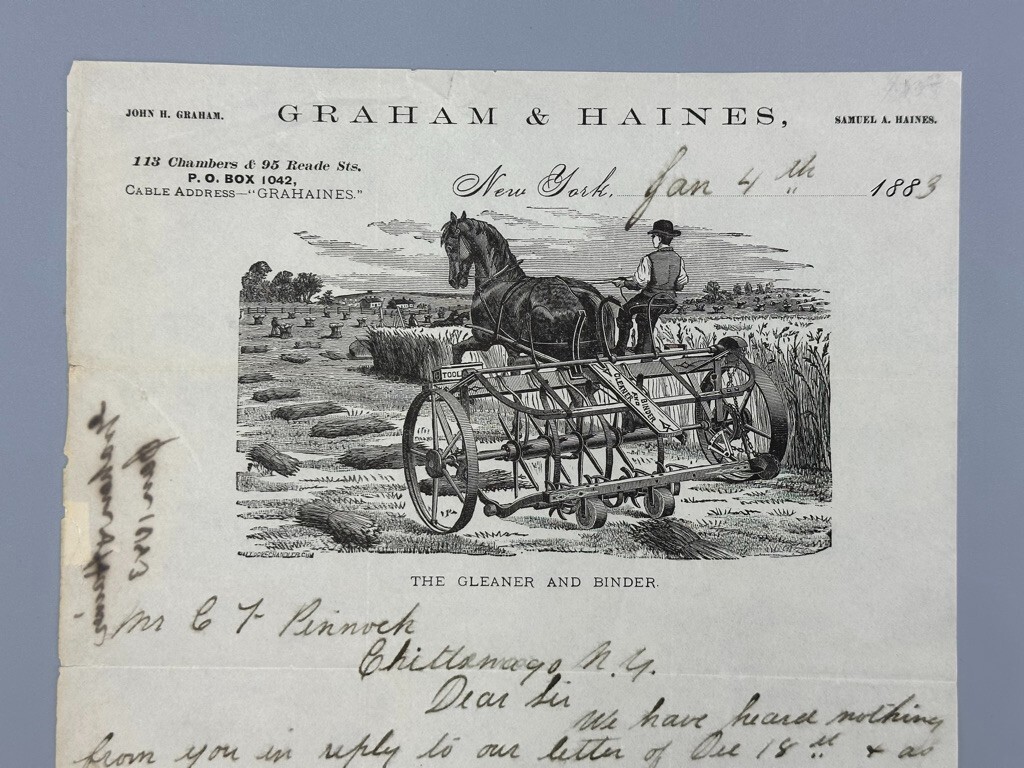 JOHN H. GRAHAM.
GRAHAM & HAINES,
SAMUEL A. HAINES.
113 Chambers & 95 Reade Sts.
P. O. BOX 1042,
CABLE ADDRESS—"GRAHAINES."
New York, Jan 4th 1883
TOOL
GLEANER AND BINDER
THE GLEANER AND BINDER.
Mr C F Pinnock
Chittanango N.Y.
Dear Sir
We have heard nothing
from you in reply to our letter of Dec 18th & as
Jan 1083
Graham & Haines